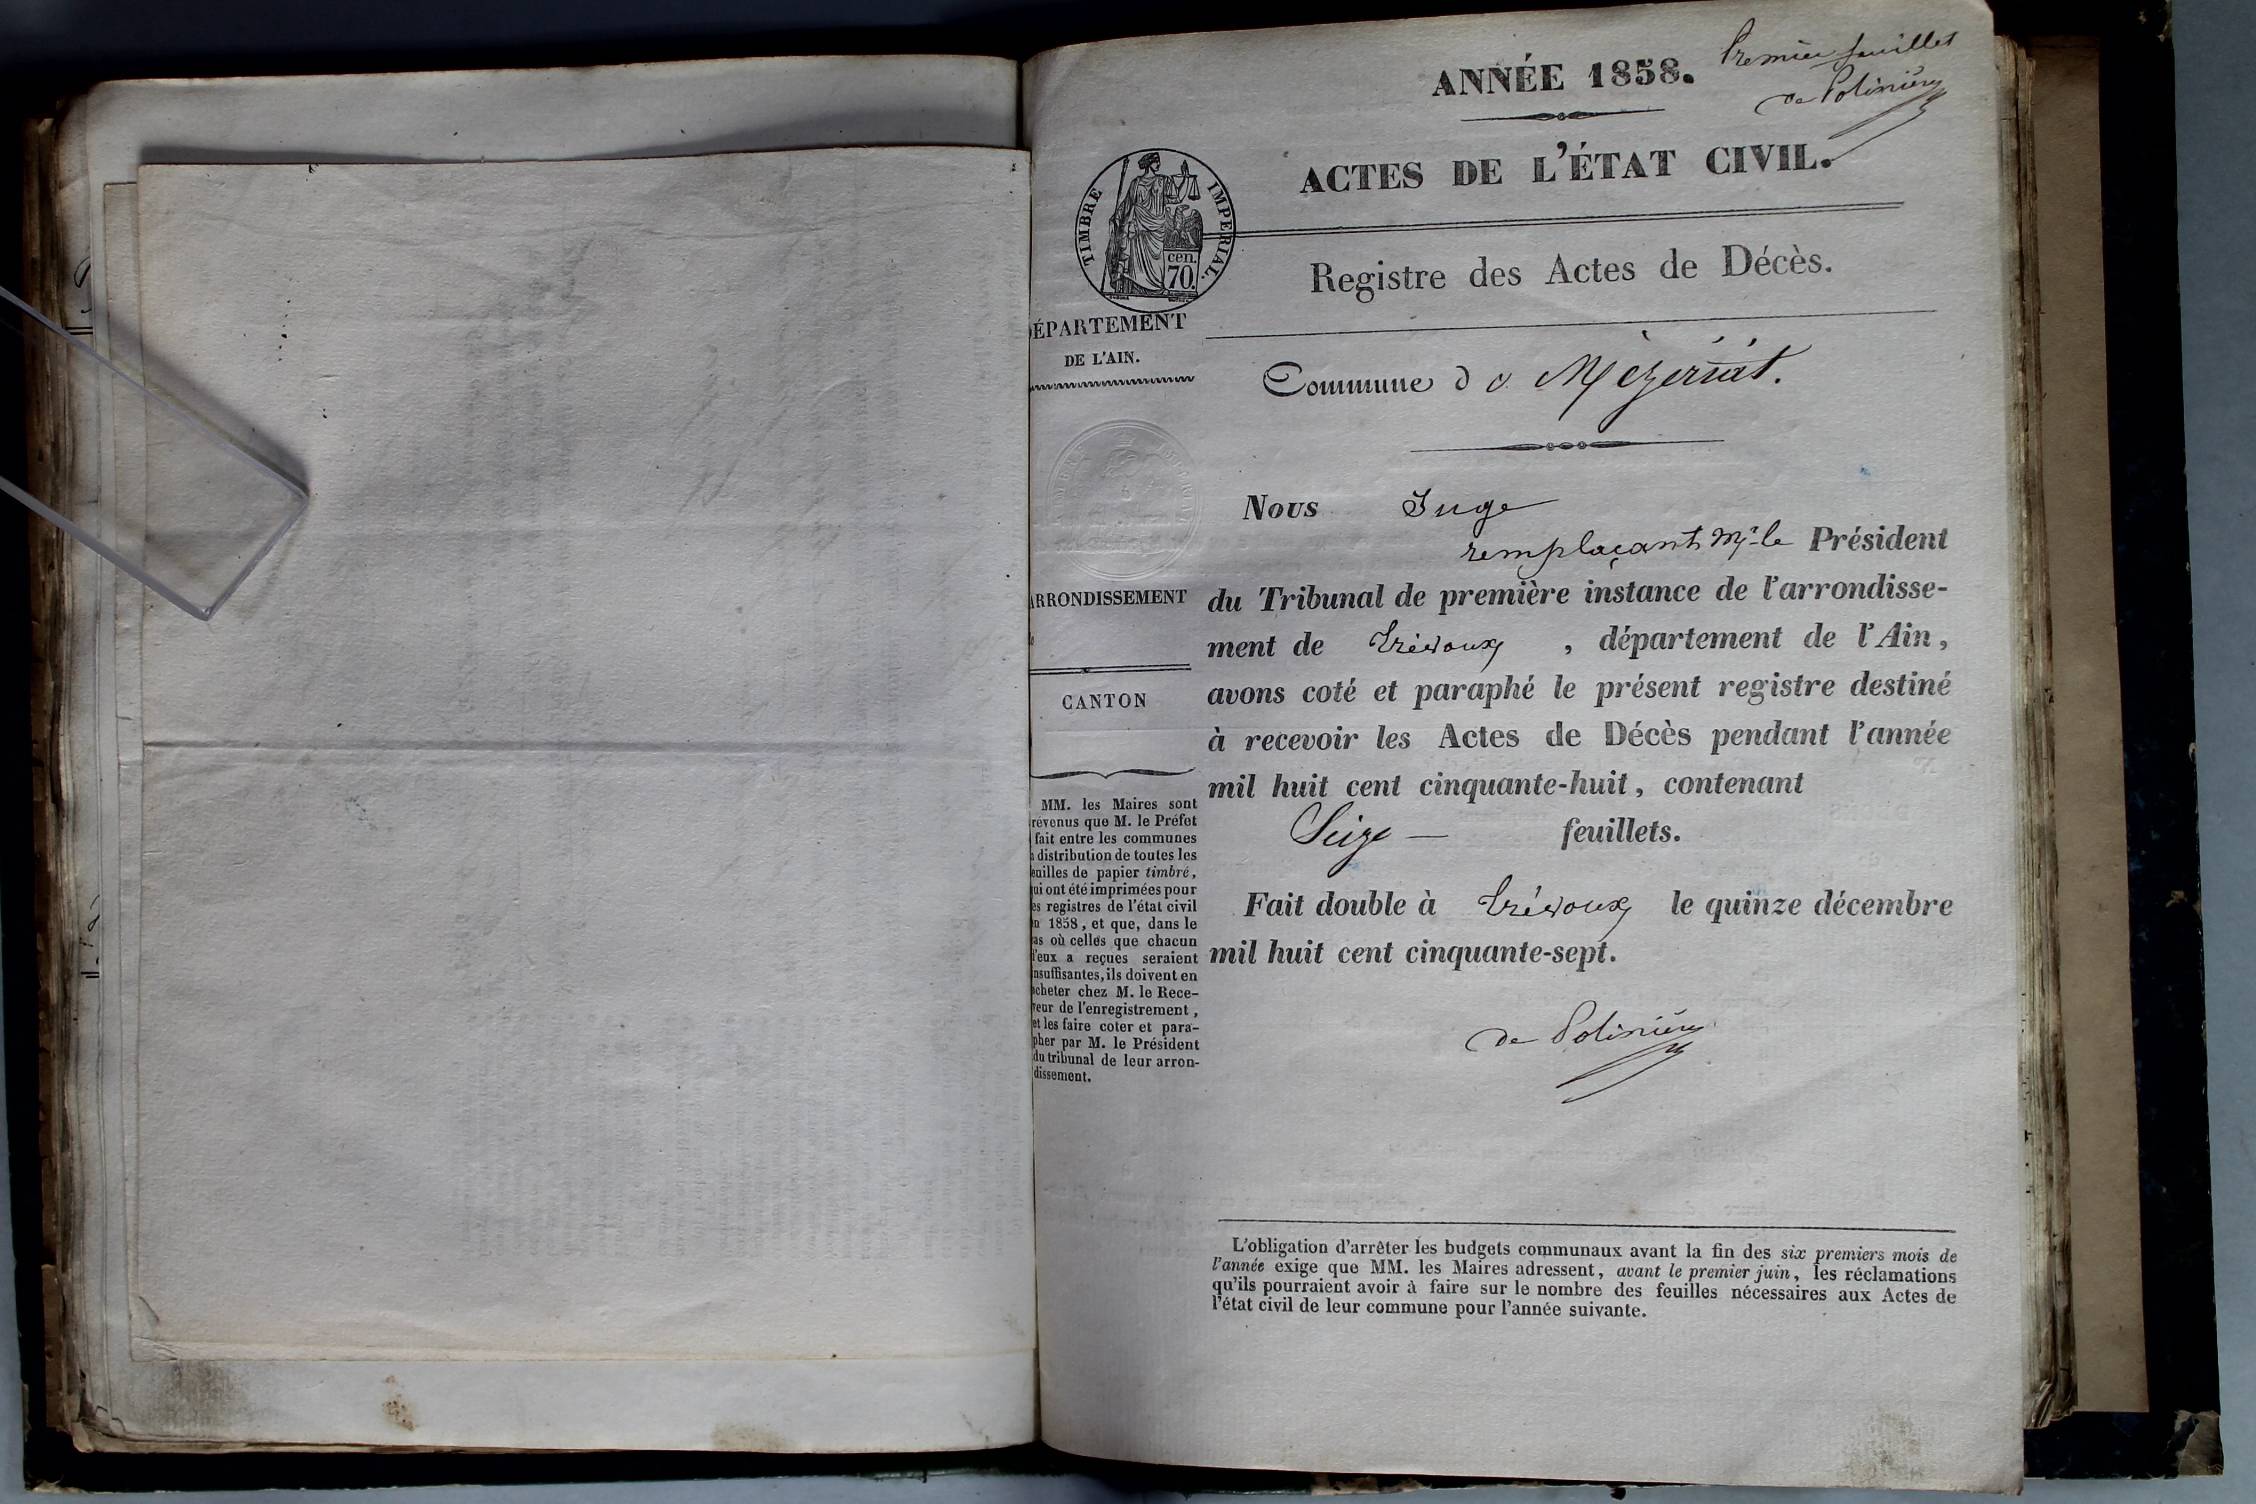 Premier feuillet
de Polinière
ANNÉE 1858.
ACTES DE L'ÉTAT CIVIL.
TIMBRE IMPERIAL.
cen.
70.
Registre des Actes de Décès.
DÉPARTEMENT
DE L'AIN.
Commune de Mézériat.
Nous Juge
remplaçant Mr le Président
du Tribunal de première instance de l'arrondisse-
ment de Trévoux, département de l'Ain,
avons coté et paraphé le présent registre destiné
à recevoir les Actes de Décès pendant l'année
mil huit cent cinquante-huit, contenant
Seize — feuillets.
Fait double à Trévoux le quinze décembre
mil huit cent cinquante-sept.
de Polinière
ARRONDISSEMENT
CANTON
MM. les Maires sont
révenus que M. le Préfet
fait entre les communes
a distribution de toutes les
euilles de papier timbré,
ui ont été imprimées pour
es registres de l'état civil
n 1858, et que, dans le
as où celles que chacun
d'eux a reçues seraient
nsuffisantes, ils doivent en
cheter chez M. le Rece-
veur de l'enregistrement,
et les faire coter et para-
pher par M. le Président
du tribunal de leur arron-
dissement.
L'obligation d'arrêter les budgets communaux avant la fin des six premiers mois de
l'année exige que MM. les Maires adressent, avant le premier juin, les réclamations
qu'ils pourraient avoir à faire sur le nombre des feuilles nécessaires aux Actes de
l'état civil de leur commune pour l'année suivante.